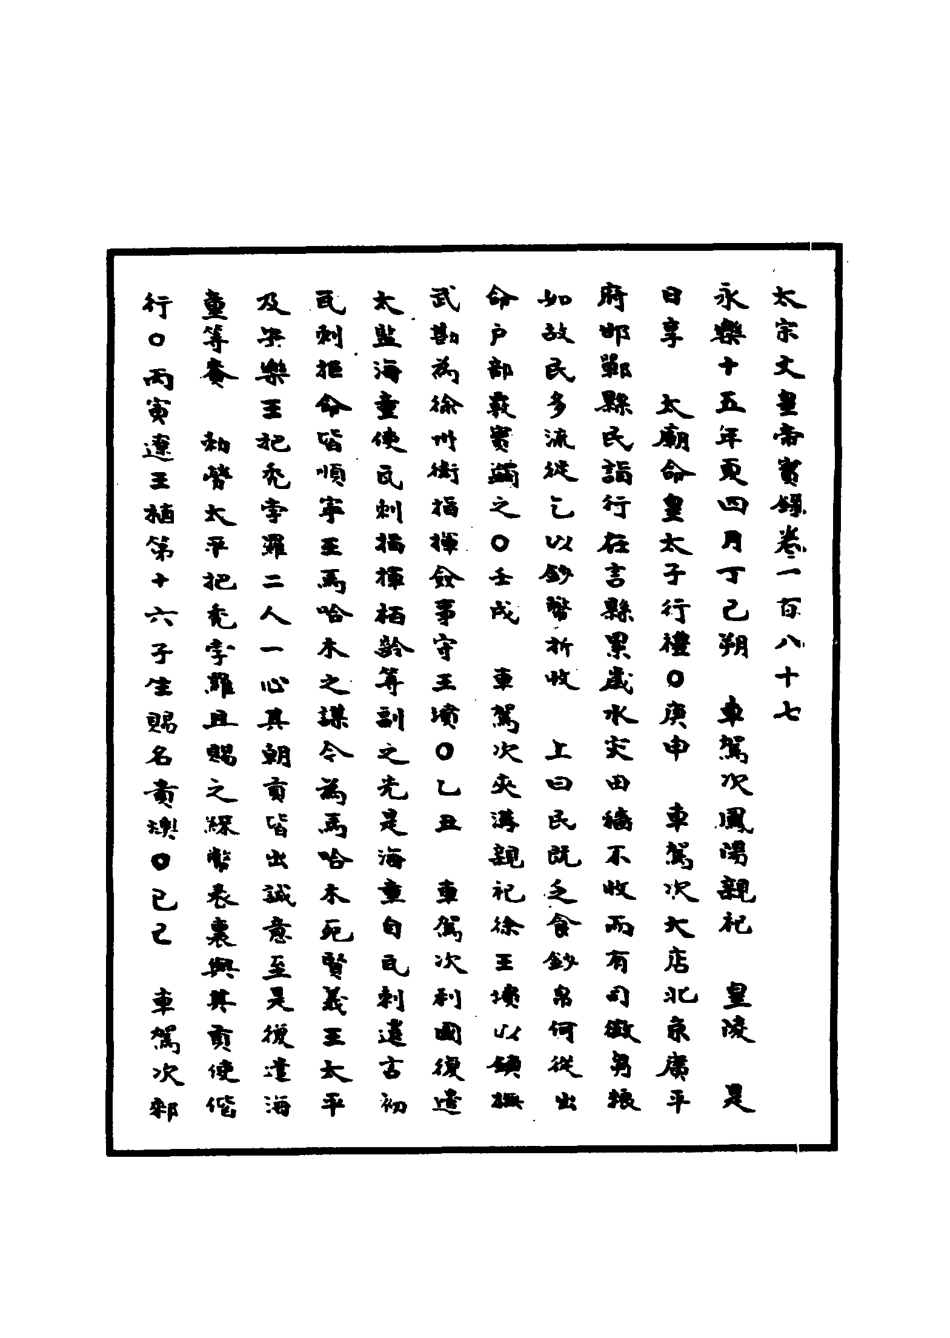 太宗文皇帝實錄卷一百八十七
永樂十五年夏四月丁己朔　車駕次鳳陽親祀　皇陵　是
日享　太廟命皇太子行禮○庚申　車駕次大店北京廣平
府邯鄲縣民詣行在言縣累歲水災田穡不收而有司徵芻糧
如故民多流徙乞以鈔幣折收　上曰民既乏食鈔帛何從出
命戶部覈實蠲之○壬戌　車駕次夾溝親祀徐王墳以鎮撫
武勘為徐州衛指揮僉事守王墳○乙丑　車駕次利國復遣
太監海童使瓦剌指揮栢齡等副之先是海童自瓦剌還言初
瓦剌拒命皆順寧王馬哈木之謀今為馬哈木死賢義王太平
及安樂王把禿孛羅二人一心其朝貢皆出誠意至是復遣海
童等賚　勑勞太平把禿孛羅且賜之綵幣表裏與其貢使偕
行○丙寅遼王植第十六子生賜名貴㙺○已巳　車駕次鄒